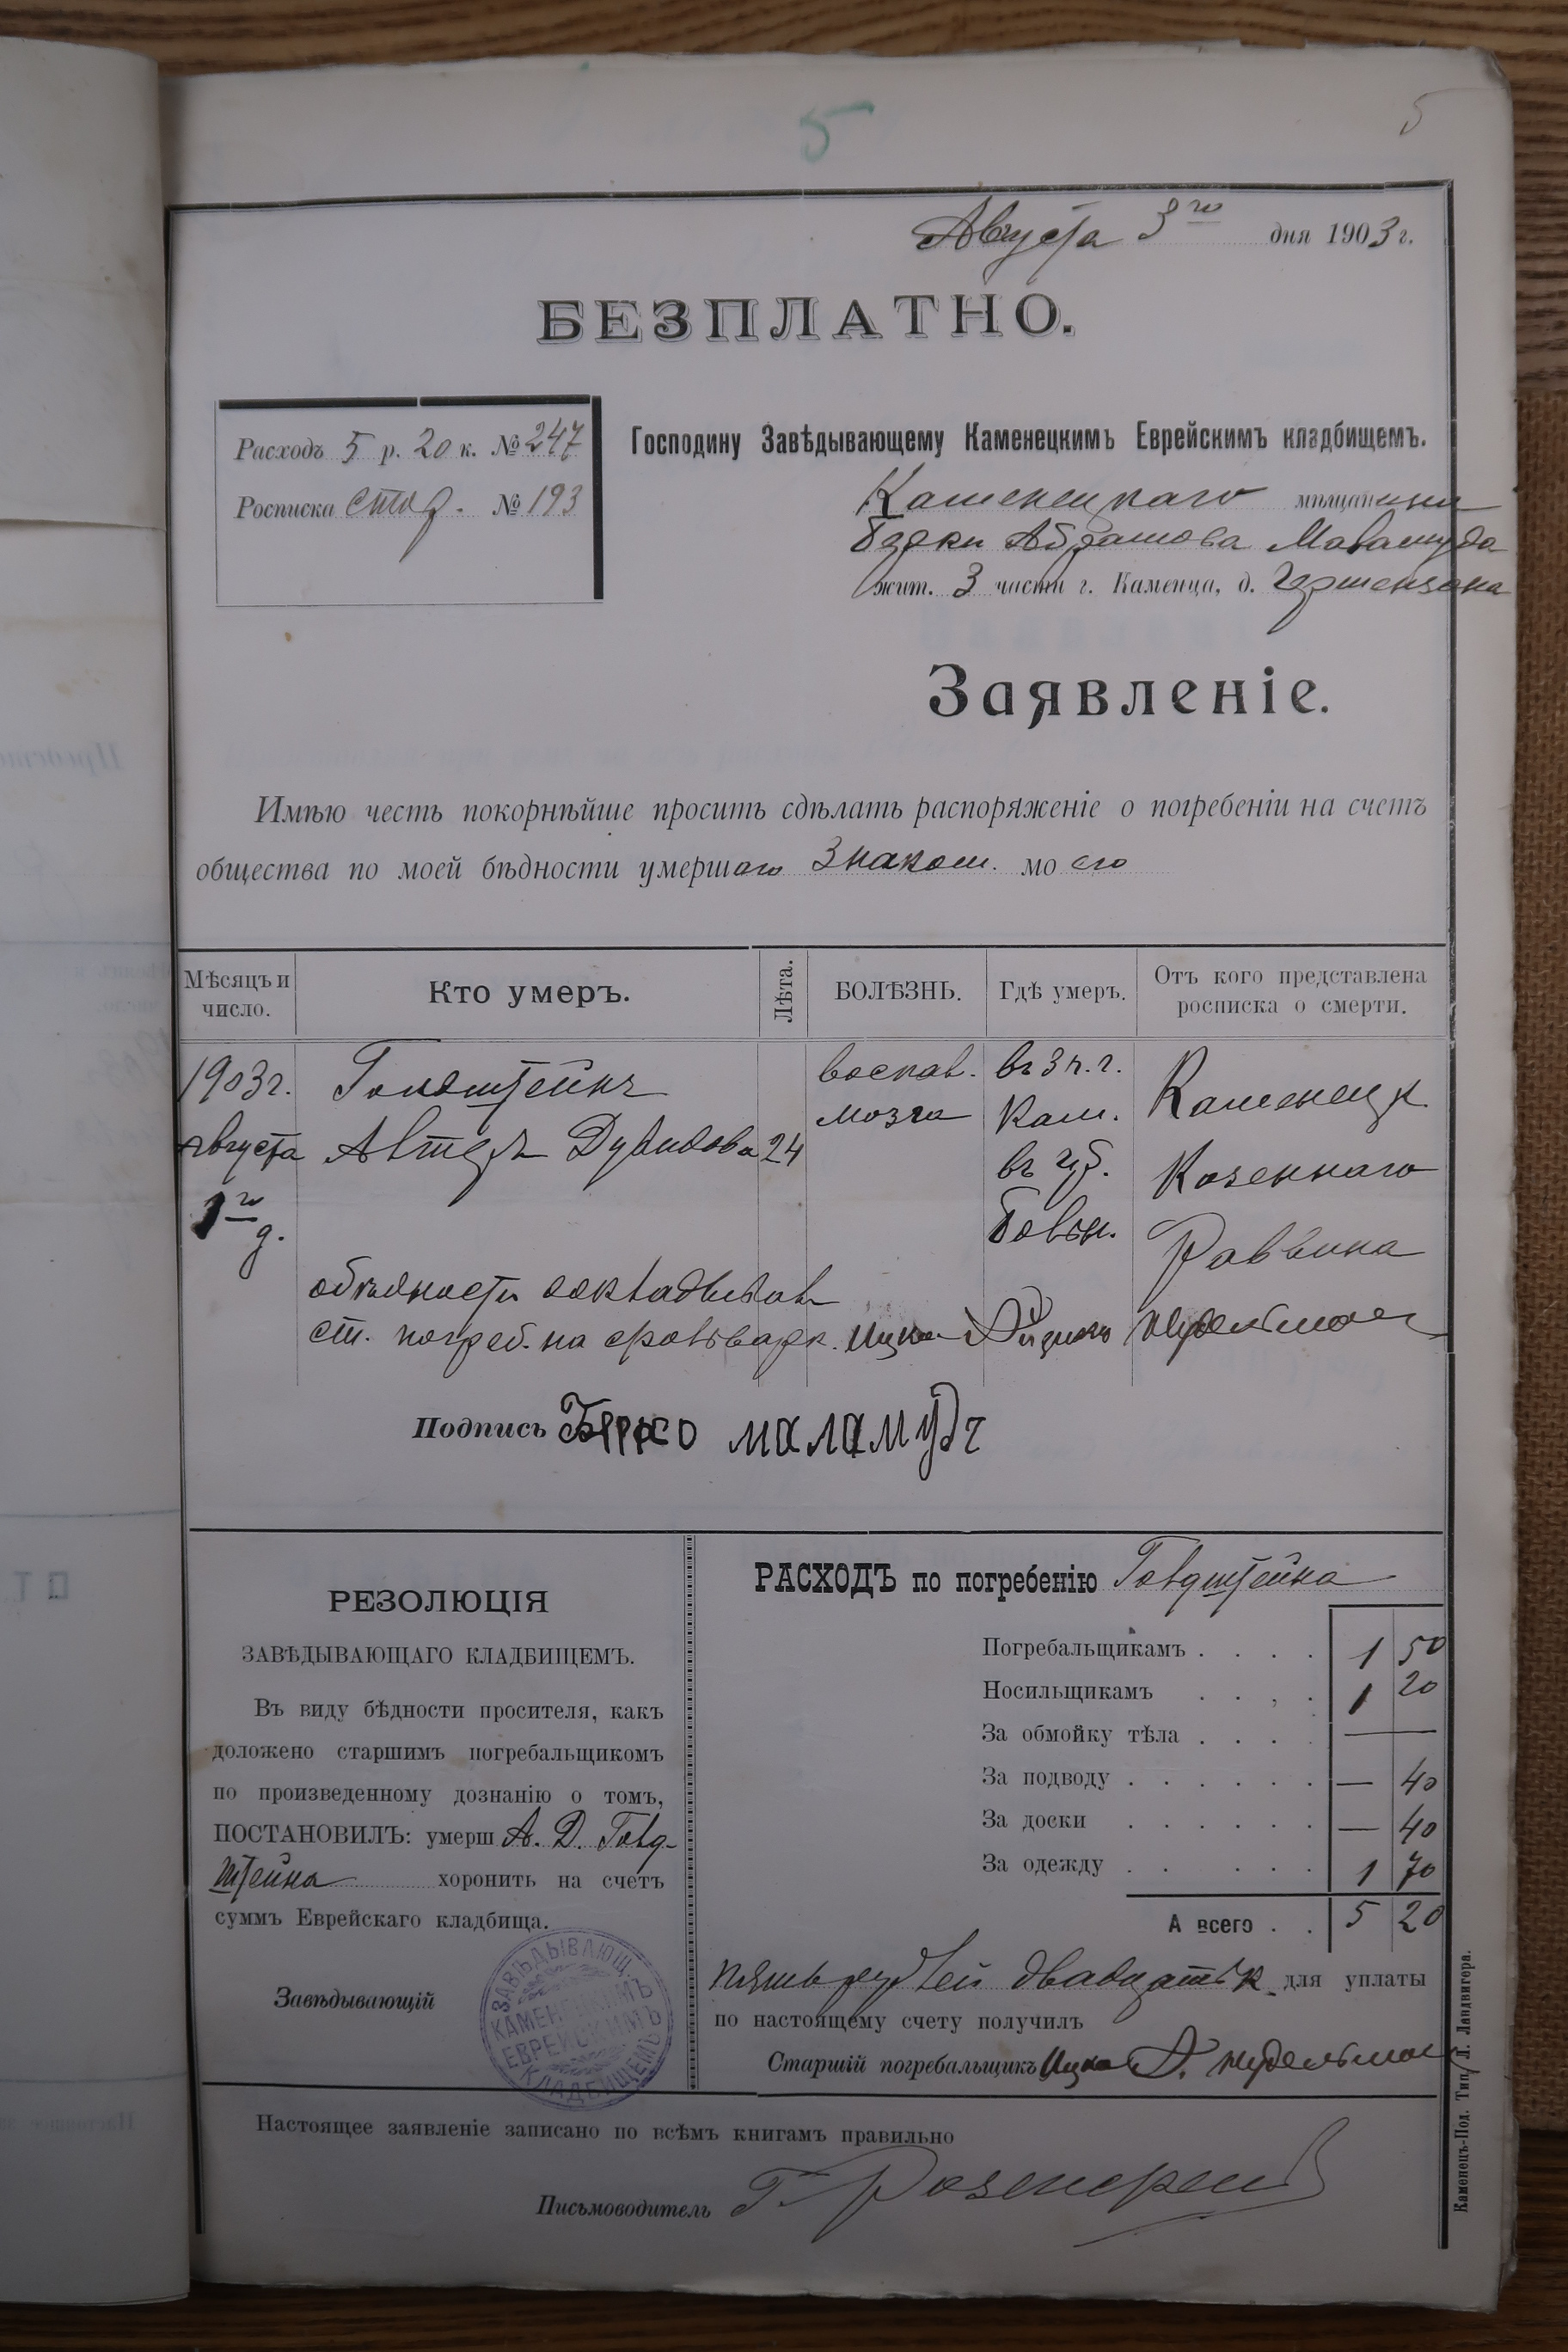 5
5
Августа 3го дня 1903 г.
БЕЗПЛАТНО.
Расходъ 5 р. 20 к. № 247
Росписка стар. № 193
Господину Завѣдывающему Каменецкимъ Еврейскимъ кладбищемъ.
Каменецкаго мѣщанина
Берки Абрамова Маламуда
жит. 3 части г. Каменца, д. Гершензона
Заявленіе.
Имѣю честь покорнѣйше просить сдѣлать распоряженіе о погребеніи на счетъ
общества по моей бѣдности умершаго знаком. моего
Мѣсяцъ и число.
Кто умеръ.
Лѣта.
БОЛѢЗНЬ.
Гдѣ умеръ.
Отъ кого представлена росписка о смерти.
1903 г. Гольдштейнъ воспал. въ 3 ч. г. Каменецк
Августа Авшель Дувидовъ 24 мозга Кам. Казеннаго
1го д. въ губ. больн. Раввина
о бѣдности докладывалъ
ст. погреб. на фольварк. Ицко Айзикъ Нудельман
Подпись Берко маламудъ
РЕЗОЛЮЦІЯ
ЗАВѢДЫВАЮЩАГО КЛАДБИЩЕМЪ.
Въ виду бѣдности просителя, какъ
доложено старшимъ погребальщикомъ
по произведенному дознанію о томъ,
ПОСТАНОВИЛЪ: умерш А. Д. Гольд-
штейна хоронить на счетъ
суммъ Еврейскаго кладбища.
Завѣдывающій
ЗАВѢДЫВАЮЩ.
КАМЕНЕЦКИМЪ
ЕВРЕЙСКИМЪ
КЛАДБИЩЕМЪ
РАСХОДЪ по погребенію Гольдштейна
Погребальщикамъ . . . . 1 50
Носильщикамъ . . , . 1 20
За обмойку тѣла . . . . —
За подводу . . . . . . — 40
За доски . . . . . . — 40
За одежду . . . . . 1 70
А всего . . 5 20
пять рублей двадцать к. для уплаты
по настоящему счету получилъ
Старшій погребальщикъ Ицко А. Нудельман
Настоящее заявленіе записано по всѣмъ книгамъ правильно
Письмоводитель Г. Розенкренц
Каменецъ-Под. Тип. Л. Ландвигера.